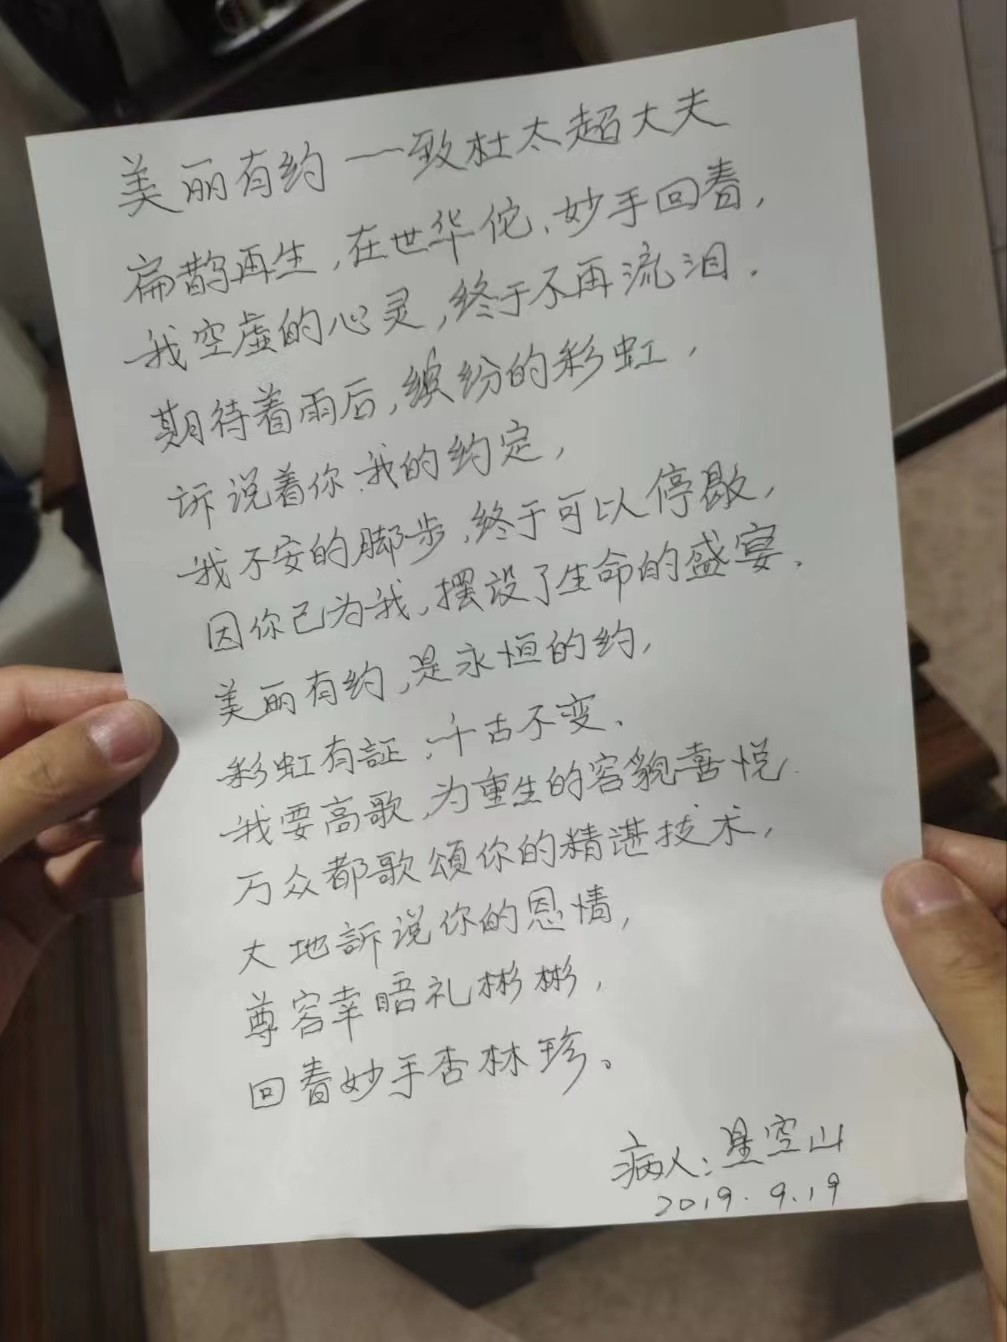 美丽有约一致杜太超大夫
扁鹊再生,在世华佗、妙手回春,
我空虚的心灵,终于不再流泪.
期待着雨后,缤纷的彩虹,
訴说着你、我的约定,
我不安的脚步,终于可以停歇,
因你已为我,摆设了生命的盛宴.
美丽有约,是永恒的约,
彩虹有証,千古不变、
我要高歌,为重生的容貌喜悦
万众都歌頌你的精谌技术,
大地訴说你的恩情,
尊容幸晤礼彬彬,
回春妙手杏林珍。
病人:星空山
2019.9.19